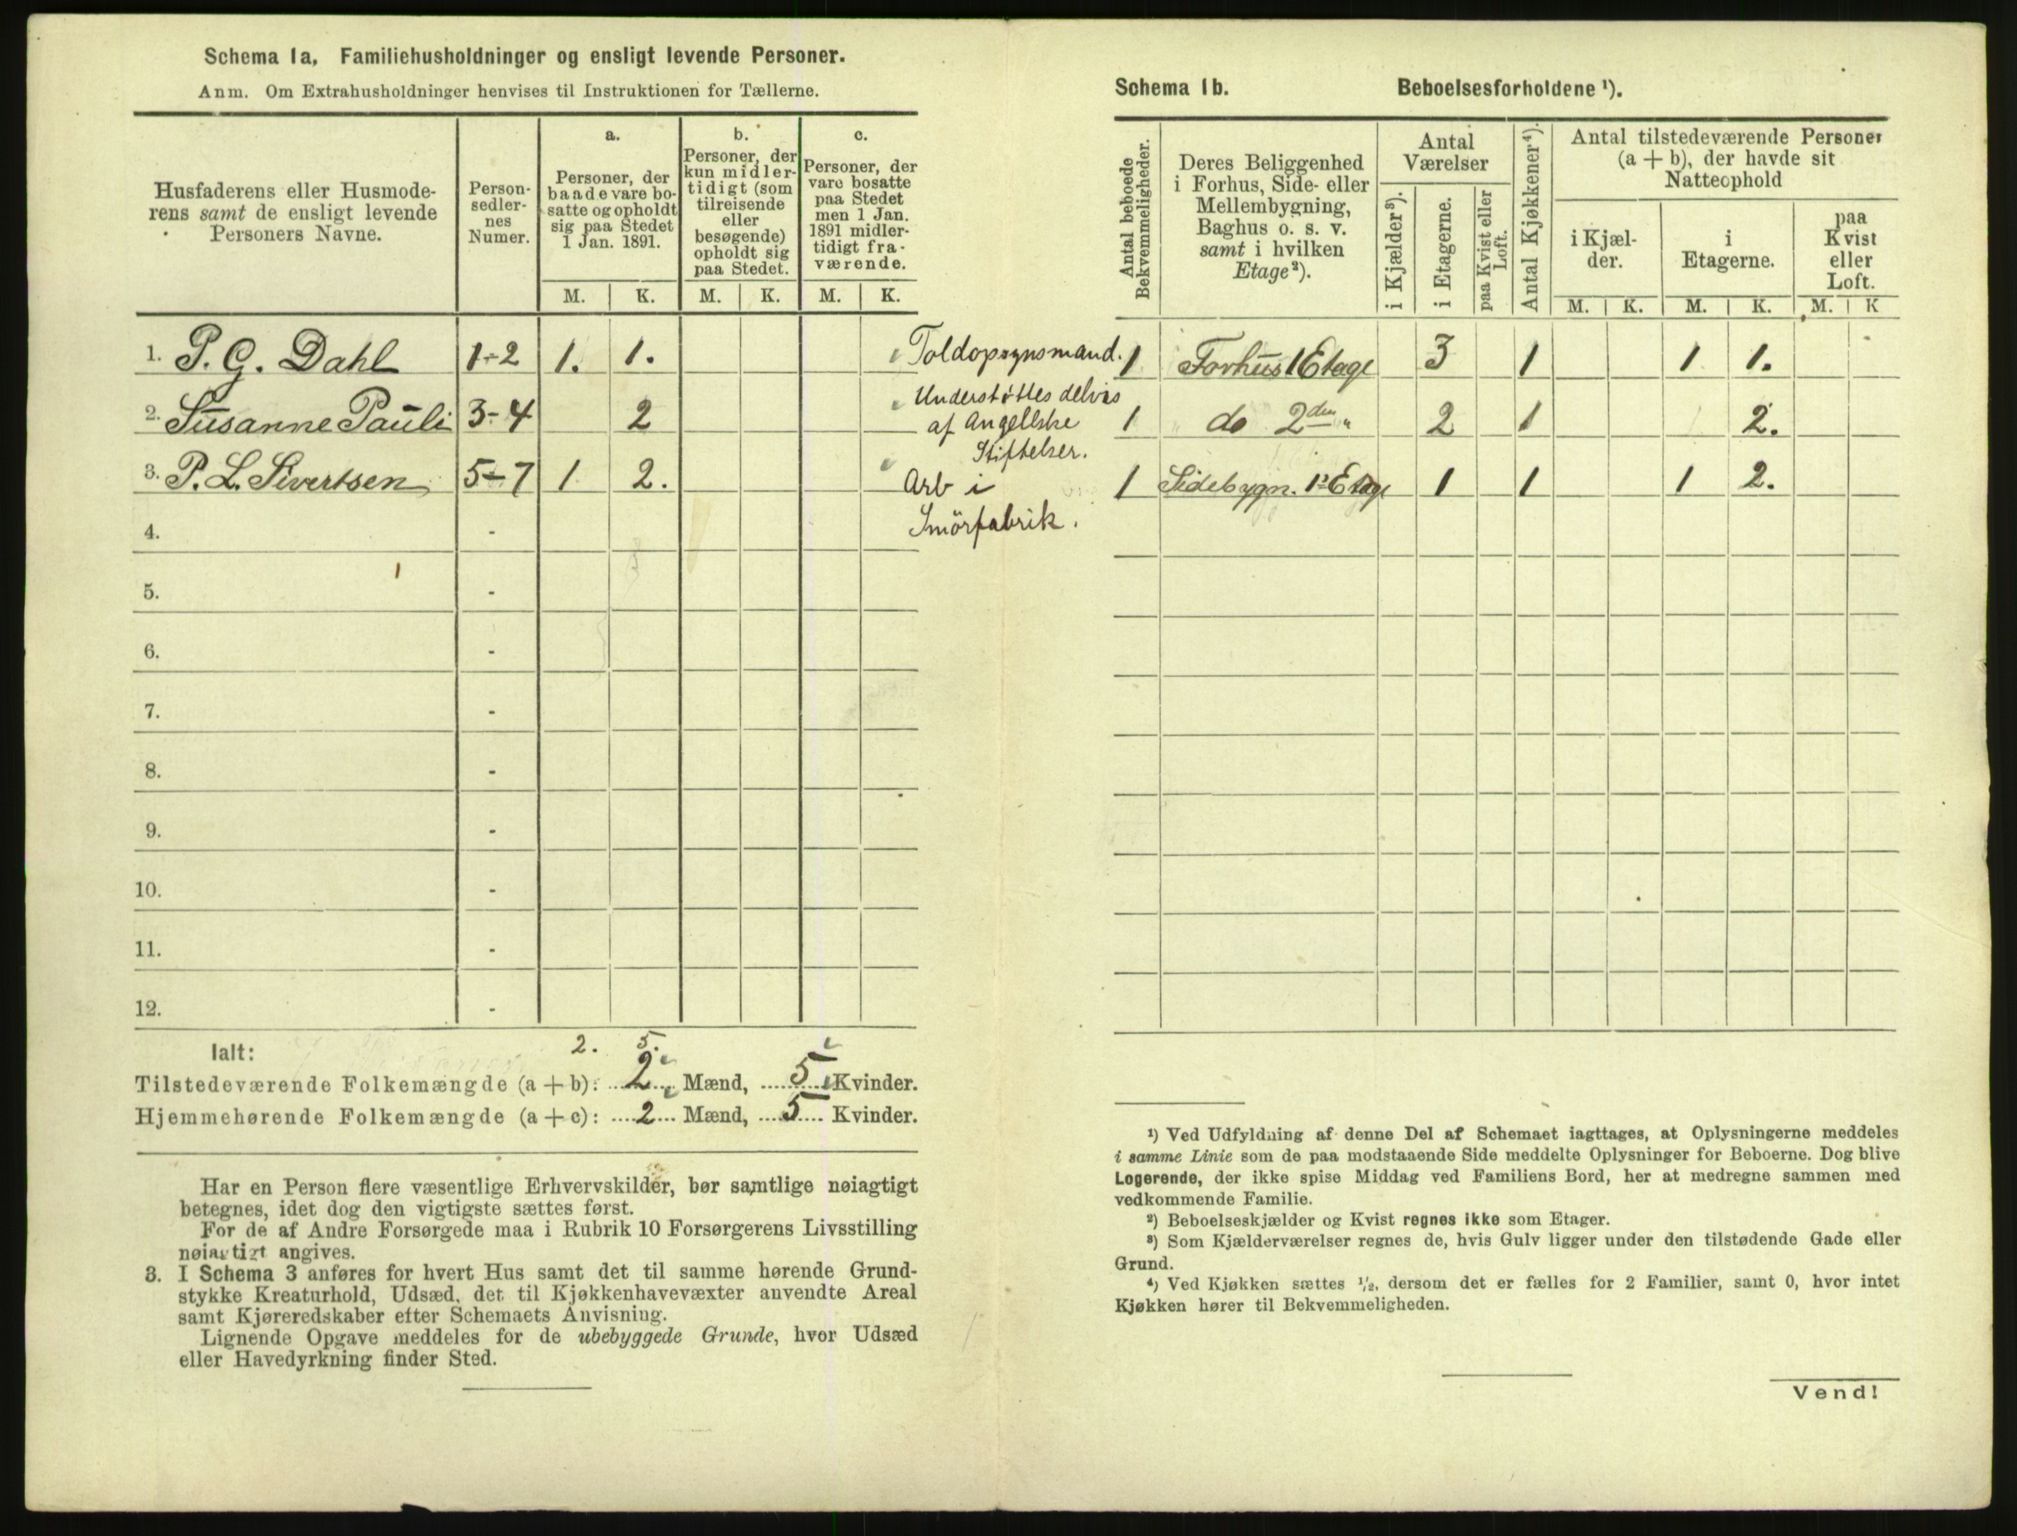 Schema 1a. Familiehusholdninger og ensligt levende Personer.
Anm. Om Extrahusholdninger henvises til Instruktionen for Tællerne.
Husfaderens eller Husmode-
rens samt de ensligt levende
Personers Navne.
Person-
sedler-
nes
Numer.
a.
Personer, der
baade vare bo-
satte og opholdt
sig paa Stedet
1 Jan. 1891.
b.
Personer, der
kun midler-
tidigt (som
tilreisende
eller
besøgende)
opholdt sig
paa Stedet.
c.
Personer, der
vare bosatte
paa Stedet
men 1 Jan.
1891 midler-
tidigt fra-
værende.
M. K. M. K. M. K.
1. P. G. Dahl 1-2 1. 1. Toldopsynsmand.
2. Susanne Pauli 3-4 2 Understøttes delvis
af Angellske
Stiftelser.
3. P. L. Sivertsen 5-7 1 2. Arb i
Smörfabrik.
4. -
5. -
6. -
7. -
8. -
9. -
10. -
11. -
12. -
Ialt: 2. 5.
Tilstedeværende Folkemængde (a + b): 2 Mænd, 5 Kvinder.
Hjemmehørende Folkemængde (a + c): 2 Mænd, 5 Kvinder.
Har en Person flere væsentlige Erhvervskilder, bør samtlige nøiagtigt
betegnes, idet dog den vigtigste sættes først.
For de af Andre Forsørgede maa i Rubrik 10 Forsørgerens Livsstilling
nøiagtigt angives.
3. I Schema 3 anføres for hvert Hus samt det til samme hørende Grund-
stykke Kreaturhold, Udsæd, det til Kjøkkenhavevæxter anvendte Areal
samt Kjøreredskaber efter Schemaets Anvisning.
Lignende Opgave meddeles for de ubebyggede Grunde, hvor Udsæd
eller Havedyrkning finder Sted.
Schema 1b. Beboelsesforholdene ¹).
Antal beboede
Bekvemmeligheder.
Deres Beliggenhed
i Forhus, Side- eller
Mellembygning,
Baghus o. s. v.
samt i hvilken
Etage²).
Antal
Værelser
i Kjælder³).
i Etagerne.
paa Kvist eller
Loft.
Antal Kjøkkener⁴).
Antal tilstedeværende Personer
(a + b), der havde sit
Natteophold
i Kjæl-
der.
i
Etagerne.
paa
Kvist
eller
Loft.
M. K. M. K. M. K
1 Forhus 1 Etage 3 1 1 1.
1 do 2den " 2 1 2.
1 Sidebygn. 1ste Etage 1 1 1 2.
¹) Ved Udfyldning af denne Del af Schemaet iagttages, at Oplysningerne meddeles
i samme Linie som de paa modstaaende Side meddelte Oplysninger for Beboerne. Dog blive
Logerende, der ikke spise Middag ved Familiens Bord, her at medregne sammen med
vedkommende Familie.
²) Beboelseskjælder og Kvist regnes ikke som Etager.
³) Som Kjælderværelser regnes de, hvis Gulv ligger under den tilstødende Gade eller
Grund.
⁴) Ved Kjøkken sættes ½, dersom det er fælles for 2 Familier, samt 0, hvor intet
Kjøkken hører til Bekvemmeligheden.
Vend!